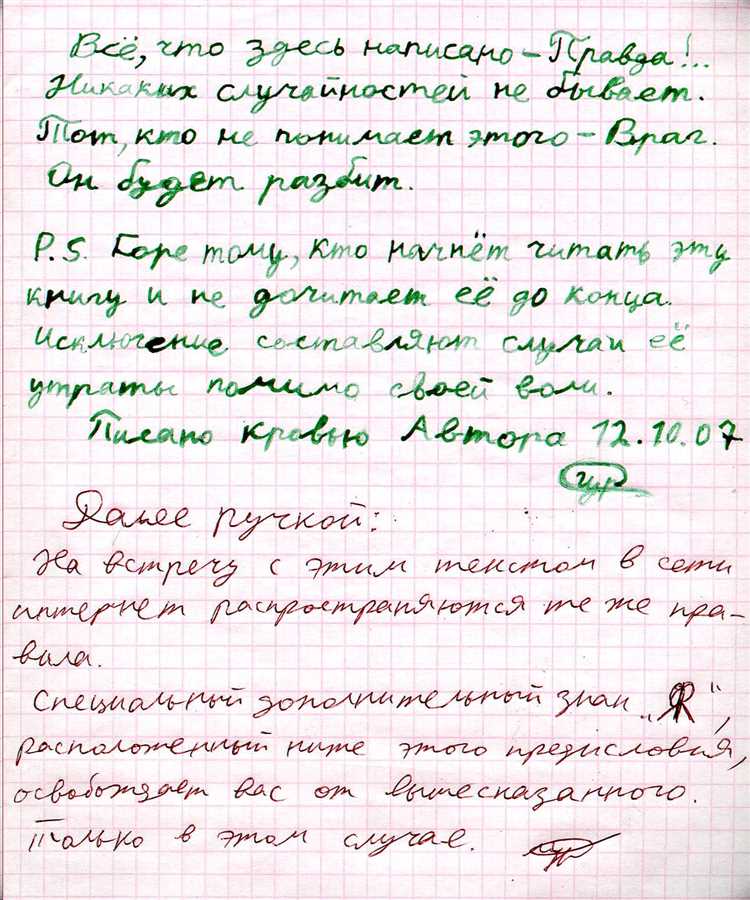 Всё, что здесь написано – Правда!..
Никаких случайностей не бывает.
Тот, кто не понимает этого – Враг.
Он будет разбит.
P.S. Горе тому, кто начнёт читать эту
книгу и не дочитает её до конца.
Исключение составляют случаи её
утраты помимо своей воли.
Писано кровью Автора 12.10.07
Далее ручкой:
На встречу с этим текстом в сети
интернет распространяются те же пра-
вила.
Специальный дополнительный знак „Я“,
расположенный ниже этого предисловия,
освобождает вас от вышесказанного.
Только в этом случае.